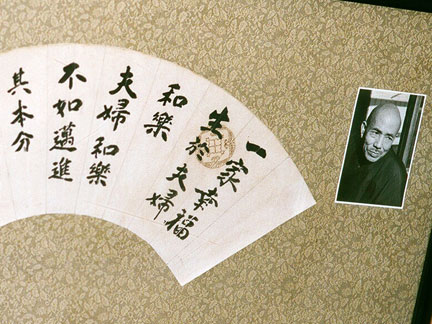 一家幸福
生於夫婦
和樂
夫婦和樂
不如邁進
其本分